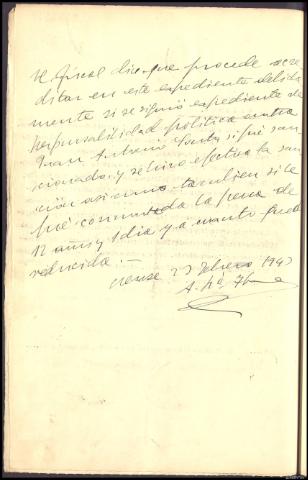 El fiscal dice que procede acre
ditar en este expediente debida
mente si se siguió expediente de
responsabilidad política contra
Juan Antonio si fué san
cionado y se hizo efectiva la san
ción asi como tambien si le
fué conmutada la pena de
12 años y 1 dia y a cuanto quedó
reducida.—
Orense 23 Febrero 1943